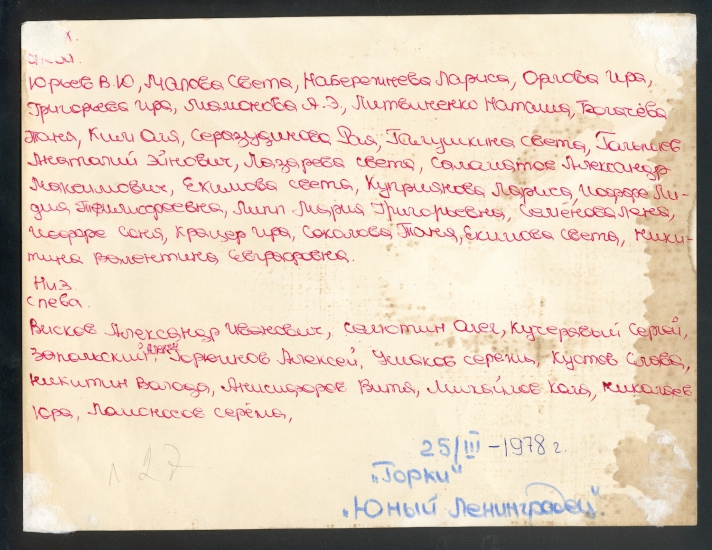 Юрьев В.Ю, Малова Света, Набережнева Лариса, Орлова Ира,
Григорьева Ира, Мамонова А.Э, Литвиненко Наташа, Богачёва
Таня, Ким Оля, Серазудинова Рая, Галушкина Света,
Анатолий Эйнович, Лазарева Света, Саламатов Александр
Максимович, Екимова Света, Куприянова Лариса, Иоффе Ли-
дия, Липп Мария Григорьевна, Семёнова Лена,
Иоффе Соня, Крацер Ира, Соколова Таня, Екимова Света, Ники-
тина Валентина Евграфовна.
Низ.
слева.
Висков Александр Иванович, Самотин Олег, Кучерявый Сергей,
Запольский, Горюнов Алексей, Ушаков Серёжа, Кустов Слава,
Никитин Володя, Анисифоров Витя, Михайлов Коля, Николаев
Юра, Ламоносов Серёжа,
25/III-1978 г.
27
„Горки"
„Юный Ленинградец".